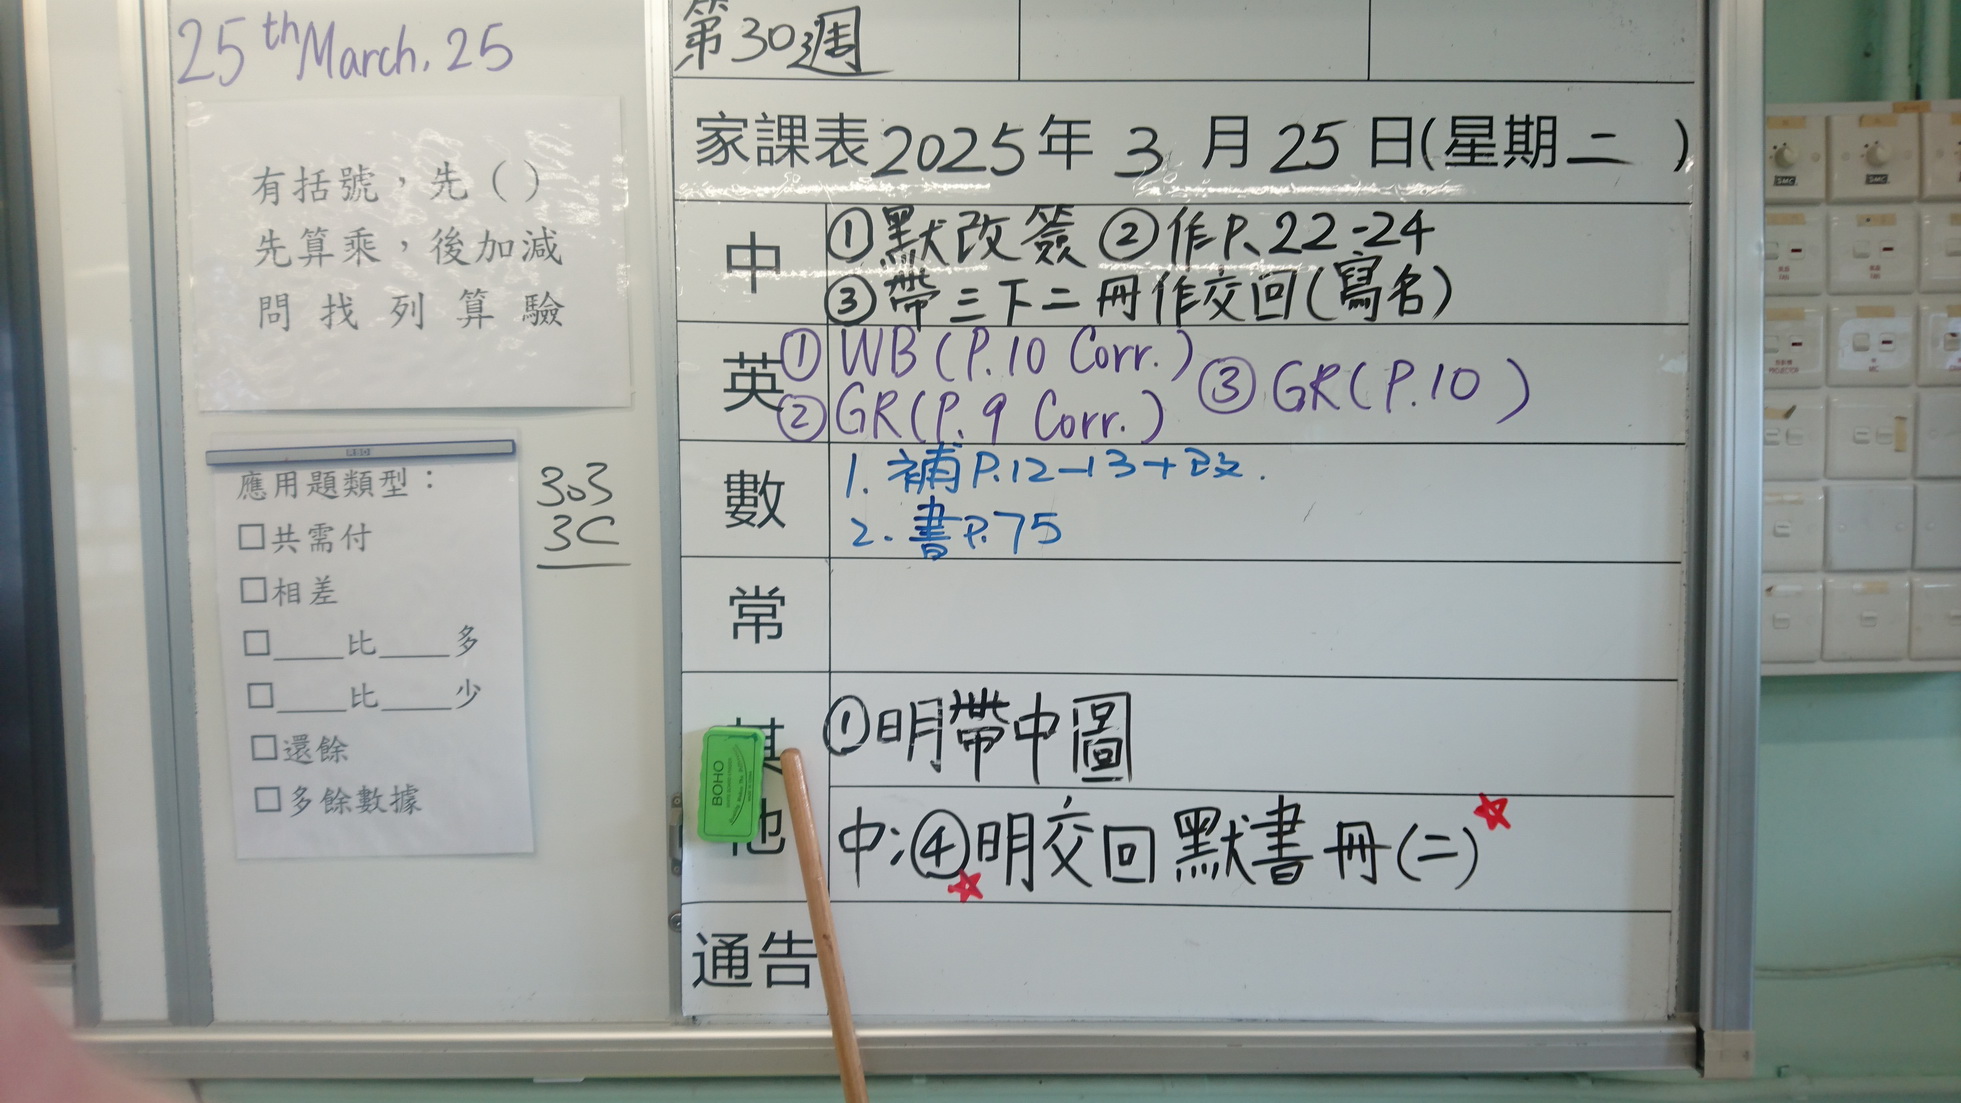 25th March. 25
有括號，先（ ）
先算乘，後加減
問找列算驗
應用題類型：
□共需付
□相差
□____比____多
□____比____少
□還餘
□多餘數據
303
3C
第30週
家課表2025年 3 月 25 日(星期二 )
中
①默改簽 ②作P.22-24
③帶三下二冊作交回(寫名)
英
① WB (P.10 Corr.) ③ GR (P.10 )
② GR (P.9 Corr.)
數
1. 補P.12-13+改.
2. 書P.75
常
其他
①明帶中圖
中:④明交回默書冊(二)
通告
BOHO
SMC
SMC